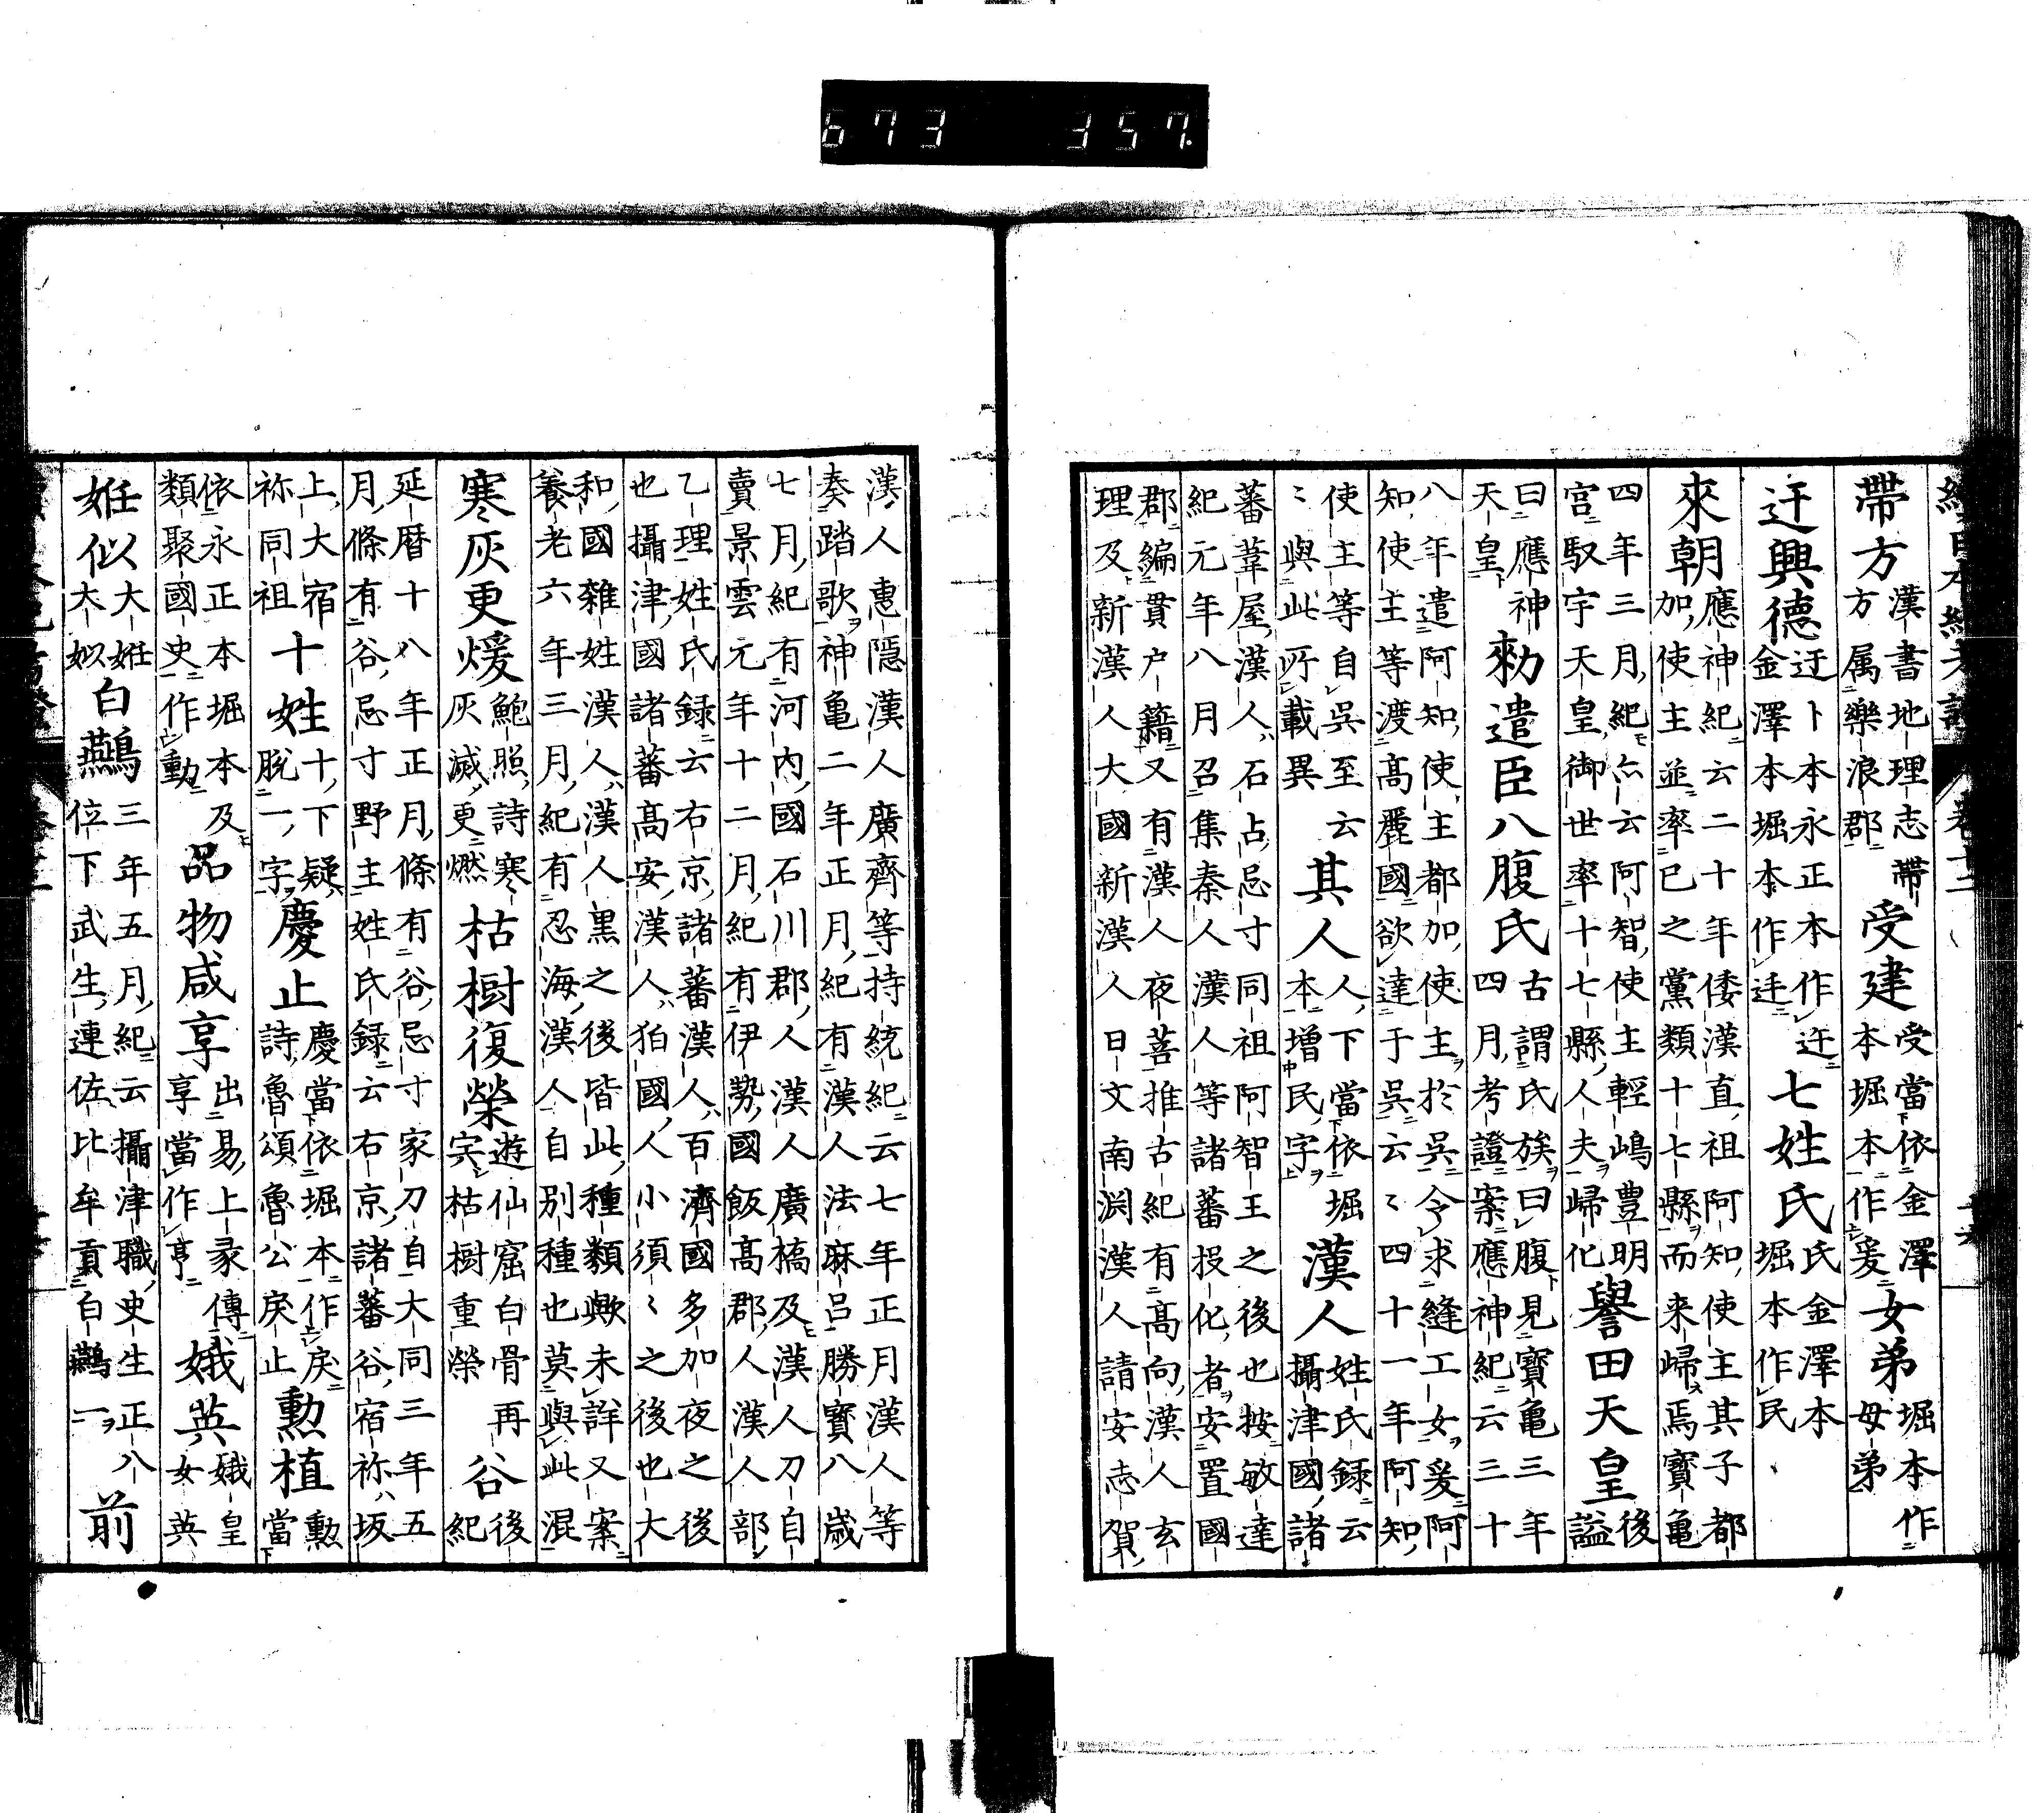 673 357
帶方漢書地理志帶方属樂浪郡受建受當依金澤本堀本作爰女弟堀本作母弟
迂興德迂卜本永正本作迕金澤本堀本作迋七姓氏氏金澤本堀本作民
來朝應神紀云二十年倭漢直祖阿知使主其子都加使主並率已之黨類十七縣而来歸焉寳亀
四年三月紀亦云阿智使主輕嶋豊明宮馭宇天皇御世率十七縣人夫歸化譽田天皇後謚
曰應神天皇勑遣臣八腹氏古謂氏族曰腹見寳亀三年四月考證案應神紀云三十
八年遣阿知使主都加使主於呉令求縫工女爰阿知使主等渡高麗國欲達于呉云〻四十一年阿知
使主等自呉至云〻與此所載異其人人下當依堀本増民字漢人姓氏録云攝津國諸
蕃葦屋漢人石占忌寸同祖阿智王之後也按敏達紀元年八月召集秦人漢人等諸蕃投化者安置國
郡編貫戸籍又有漢人夜菩推古紀有高向漢人玄理及新漢人大國新漢人日文南渕漢人請安志賀
漢人惠隱漢人廣齊等持統紀云七年正月漢人等奏踏歌神亀二年正月紀有漢人法麻呂勝寳八歳
七月紀有河内國石川郡人漢人廣橋及漢人刀自賣景雲元年十二月紀有伊勢國飯高郡人漢人部
乙理姓氏録云右京諸蕃漢人百濟國多加夜之後也攝津國諸蕃高安漢人狛國人小須〻之後也大
和國雜姓漢人漢人黒之後皆此種類歟未詳又案養老六年三月紀有忍海漢人自別種也莫與此混
寒灰更煖鮑照詩寒灰滅更燃枯樹復榮遊仙窟白骨再宍枯樹重榮谷後紀
延暦十八年正月條有谷忌寸家刀自大同三年五月條有谷忌寸野主姓氏録云右京諸蕃谷宿祢坂
上大宿祢同祖十姓十下疑脱一字慶止慶當依堀本作戻詩魯頌魯公戻止勲植勲當
依永正本堀本及類聚國史作動品物咸享出易上彖傳享當作亨娥英娥皇女英
妊似大妊大姒白鷰三年五月紀云攝津職史生正八位下武生連佐比牟貢白鷰一前